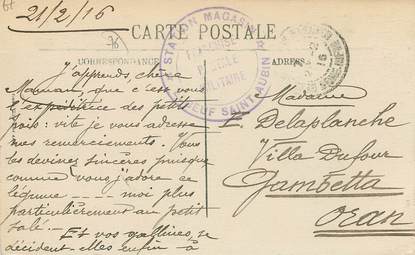 21/2/16
CARTE POSTALE
CORRESPONDANCE
ADRESSE
STATION MAGASIN
MILITAIRE
SAINT-AUBIN
J'apprends, chère
Maman, que c'est vous
l'expéditrice des petits
pois: vite je vous adresse
mes remerciements. Vous
les devinez sincères puisque
comme vous j'adore ce
légume - - - - moi plus
particulièrement au petit
salé. Et vos gallines, se
décident-elles enfin à
Madame
E. Delaplanche
Villa Dufour
Gambetta
Oran